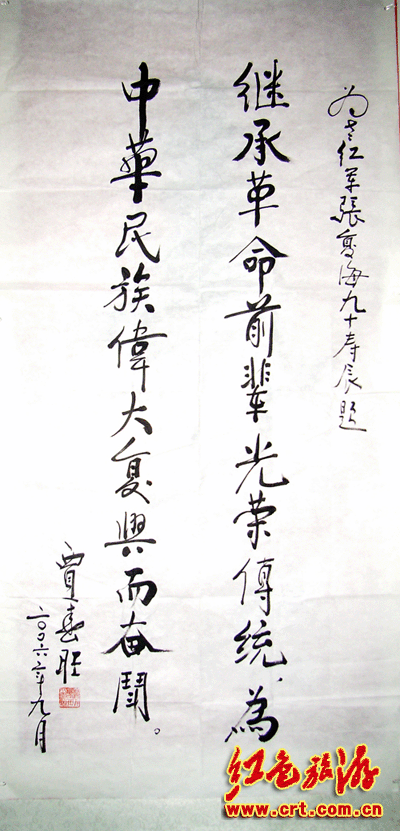 为老红军張复海九十寿辰题
继承革命前輩光荣傳统，為
中華民族偉大复興而奋鬥。
賈春旺
二〇〇六年九月
红色旅游
www.crt.com.cn